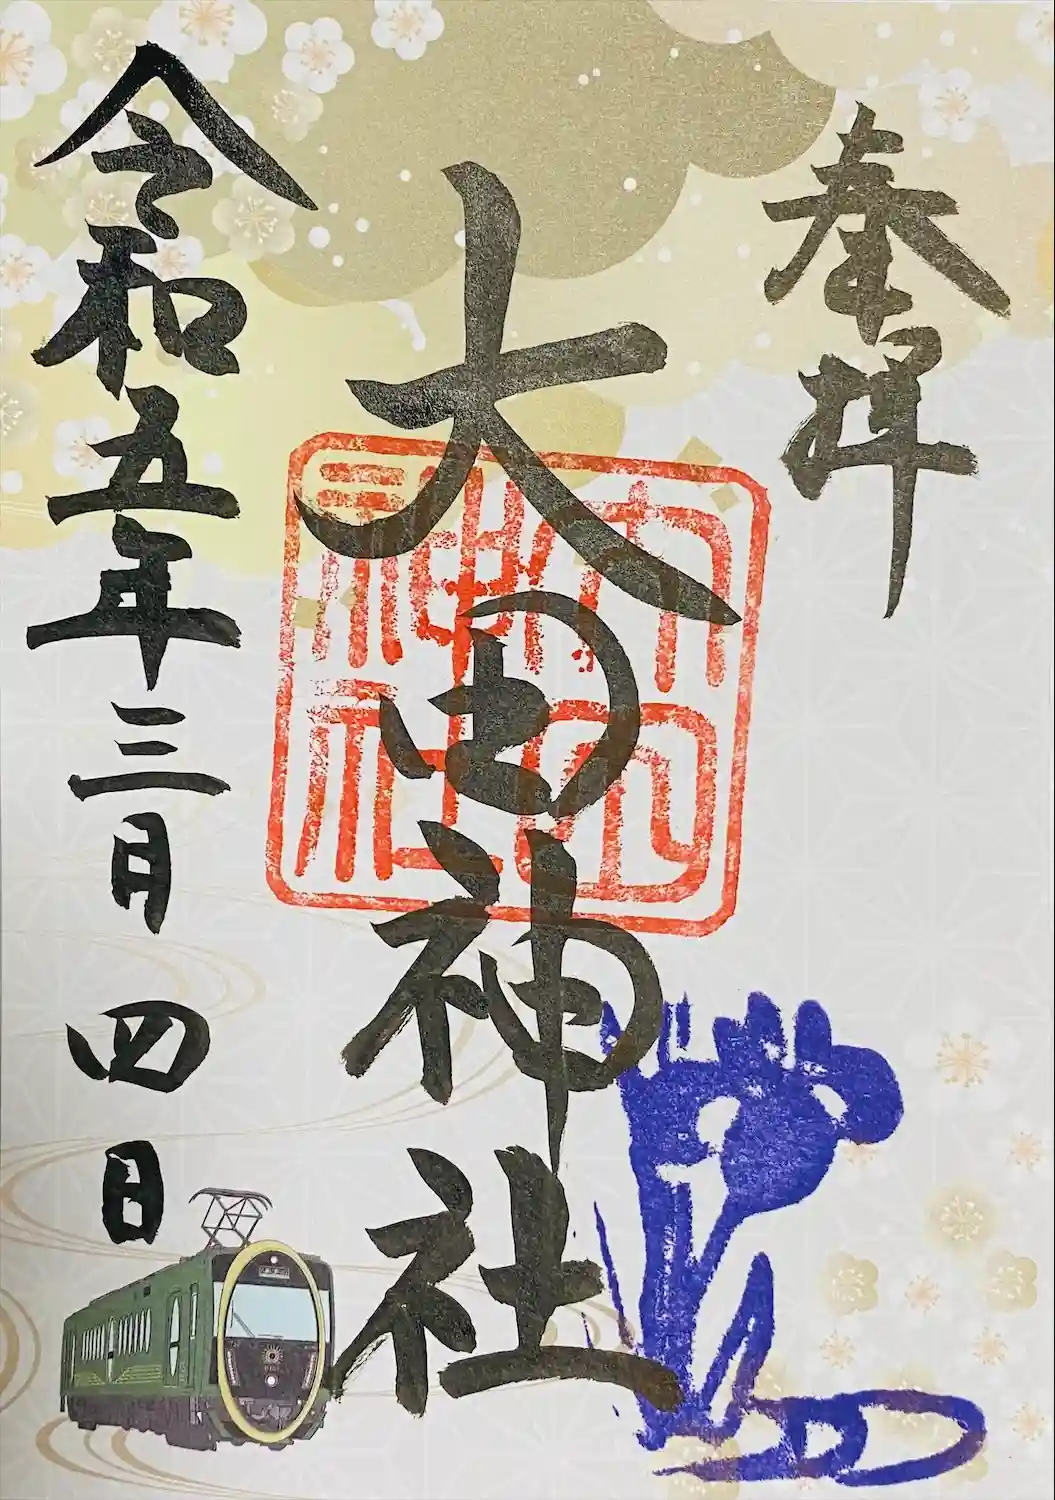 奉拝
大田神社
大田神社
令和五年三月四日